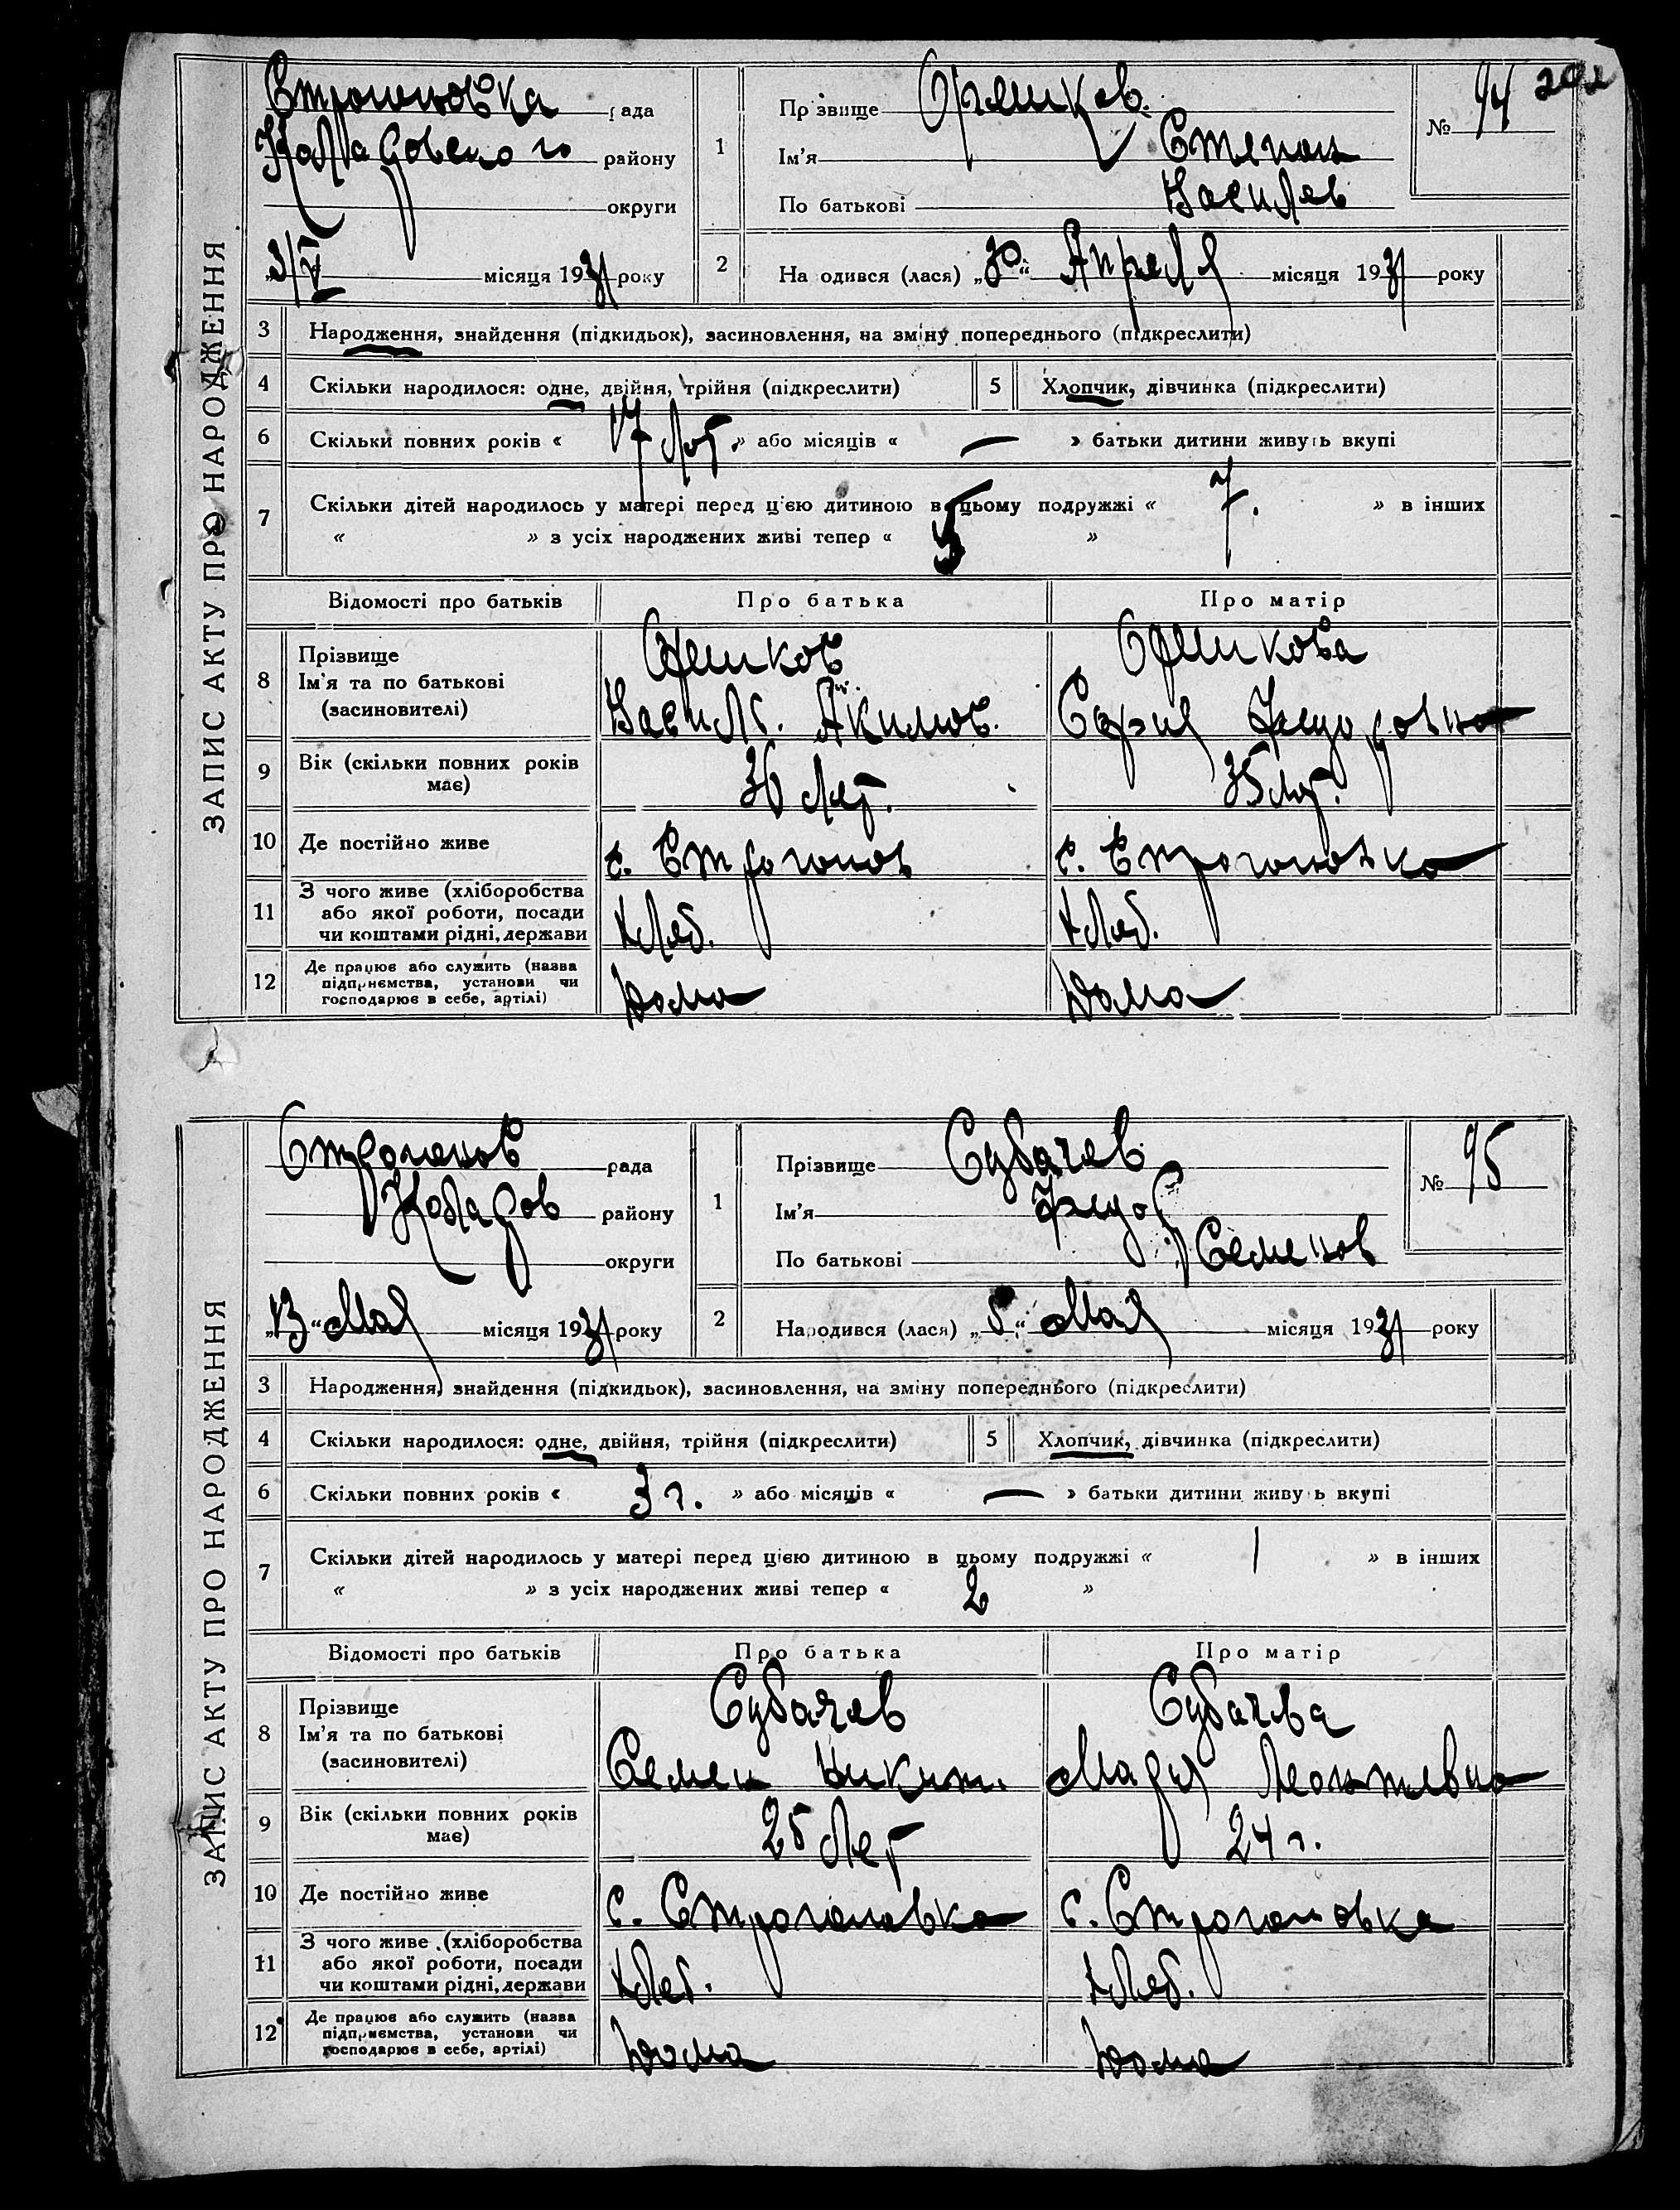 202
ЗАПИС АКТУ ПРО НАРОДЖЕННЯ
Строгоновка рада
району
округи
„3/V місяця 1931 року
1
Прізвище Орешков.
Ім'я Степан
По батькові Васильев
№ 94
2
Народився (лася) „30“ Апреля місяця 1931 року
3 Народження, знайдення (підкидьок), засиновлення, на зміну попереднього (підкреслити)
4 Скільки народилося: одне, двійня, трійня (підкреслити) 5 Хлопчик, дівчинка (підкреслити)
6 Скільки повних років « 17 лет. » або місяців « — » батьки дитини живуть вкупі
7 Скільки дітей народилось у матері перед цією дитиною в цьому подружжі « 7. » в інших
« » з усіх народжених живі тепер « 5 »
Відомості про батьків Про батька Про матір
8 Прізвище
Ім'я та по батькові
(засиновителі)
Орешков
Васил. Акимов.
Орешкова
Федоровна
9 Вік (скільки повних років має)
36 лет.
35 лет.
10 Де постійно живе с. Строгонов с. Строгоновка
11 З чого живе (хліборобства
або якої роботи, посади
чи коштами рідні, держави
хлеб. хлеб.
12 Де працює або служить (назва
підприємства, установи чи
господарює в себе, артілі)
дома дома
ЗАПИС АКТУ ПРО НАРОДЖЕННЯ
Строгонов рада
району
округи
„13“ Мая місяця 1931 року
1
Прізвище Субачев
Ім'я Федор
По батькові Семенов
№ 95
2
Народився (лася) „5“ Мая місяця 1931 року
3 Народження, знайдення (підкидьок), засиновлення, на зміну попереднього (підкреслити)
4 Скільки народилося: одне, двійня, трійня (підкреслити) 5 Хлопчик, дівчинка (підкреслити)
6 Скільки повних років « 3 г. » або місяців « — » батьки дитини живуть вкупі
7 Скільки дітей народилось у матері перед цією дитиною в цьому подружжі « 1 » в інших
« » з усіх народжених живі тепер « 2 »
Відомості про батьків Про батька Про матір
8 Прізвище
Ім'я та по батькові
(засиновителі)
Субачев
Семен Никит.
Субачева
Мария Леонтьевна
9 Вік (скільки повних років має)
25 лет
24 г.
10 Де постійно живе с. Строгоновка с. Строгоновка
11 З чого живе (хліборобства
або якої роботи, посади
чи коштами рідні, держави
хлеб. хлеб.
12 Де працює або служить (назва
підприємства, установи чи
господарює в себе, артілі)
дома дома